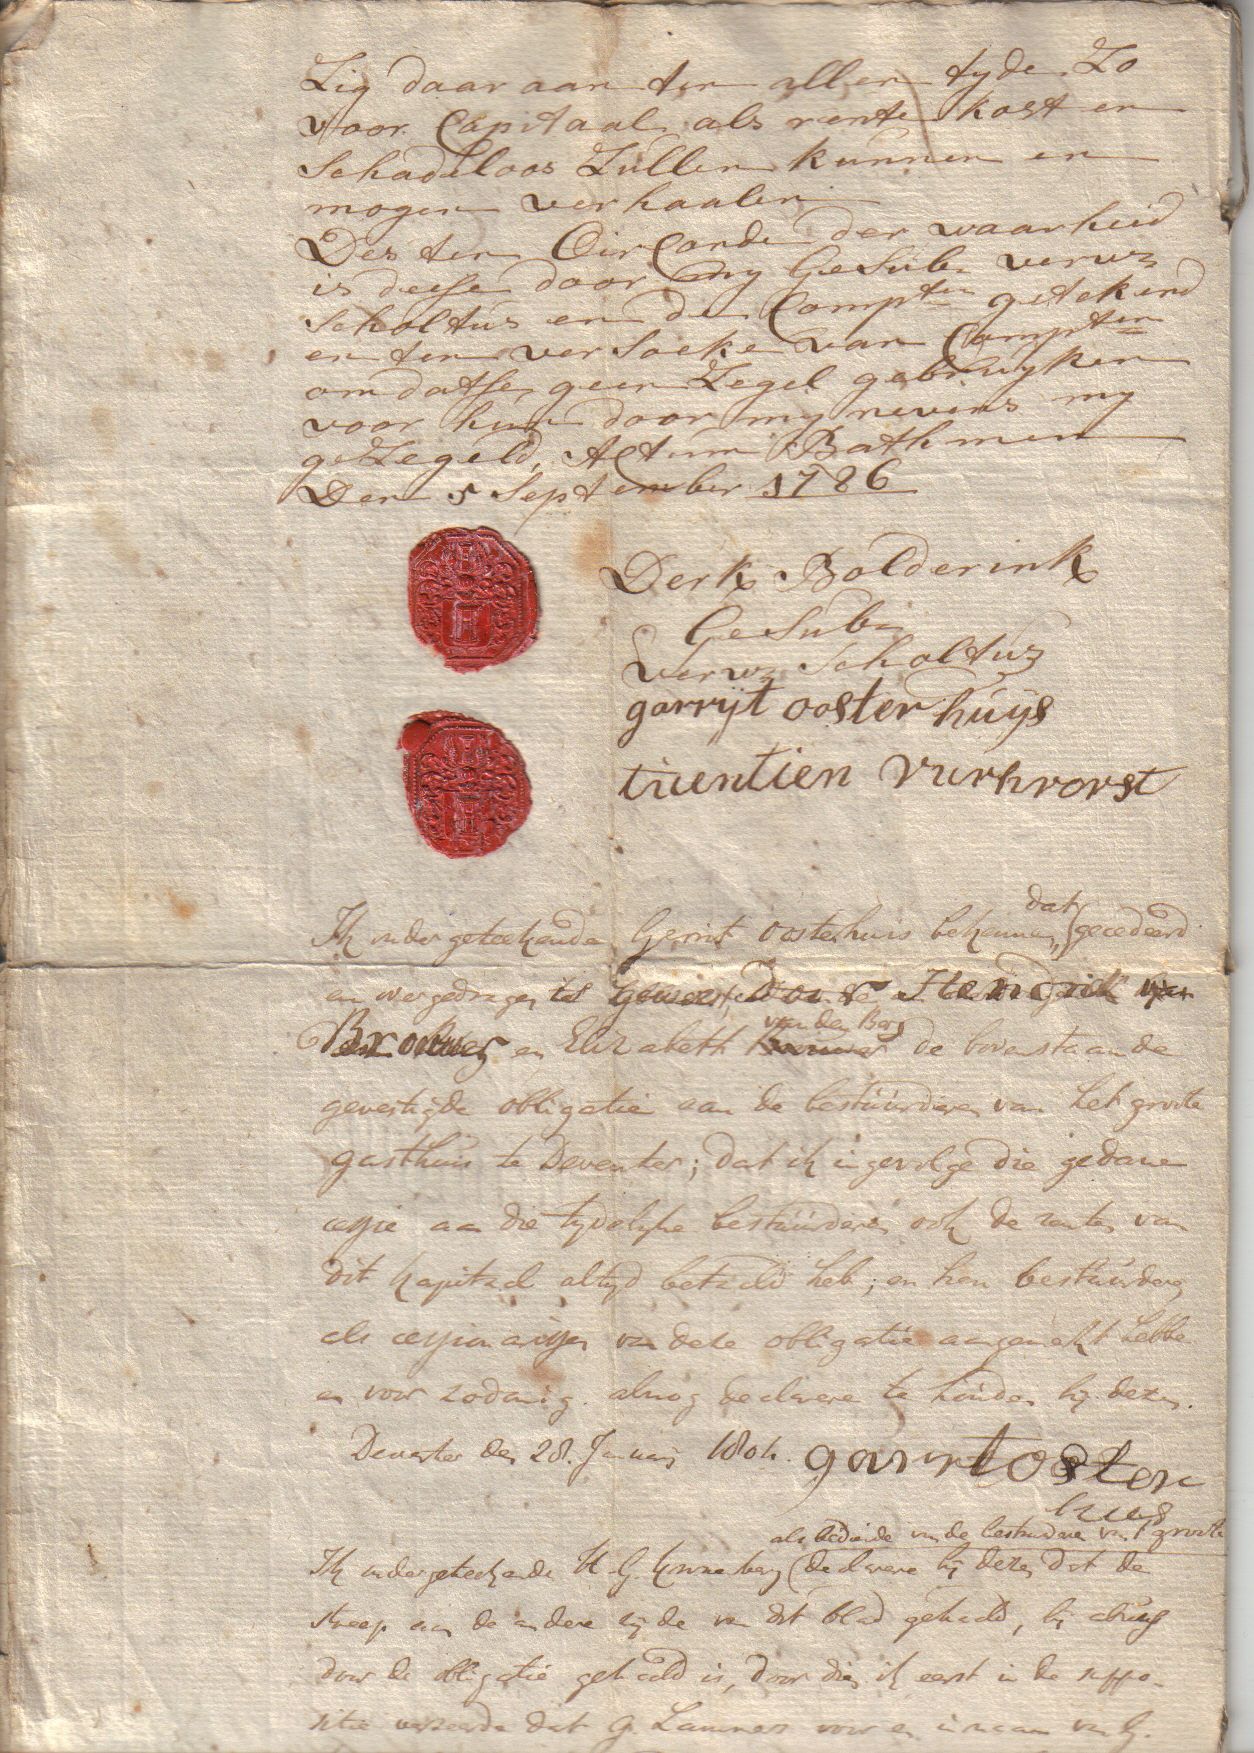 Zig daar aan ten allen tyde Zo
voor Capitaal als rente kost en
Schadeloos Zullen kunnen en
mogen verhaalen
Des ten Oirconde der waarheid
is deese door my GeSub: verwr
Scholtus en de Compten getekend
en ten verSoeke van Compten
omdatse geen Zegel gebruyken
voor hun door my nevens my
geZegeld, Actum Bathmen
Den 5 September 1786
Derk Bolderink
GeSub:
verwr Scholtus
garryt oosterhuys
truentien
dat
Ik ondergeteekende Gerrit Oosterhuis bekenne, gecedeerd
en overgedragen Door Hendrik
van den Berg
Brouwer en Elizabeth de bovenstaande
gevestigde obligatie aan de bestuurderen van het groote
gasthuis te Deventer; dat ik ingevolge die gedane
cessie aan die tydelyke bestuurderen ook de renten van
dit kapitaal altyd betaald heb; en hen bestuurderen
als cessionarissen van deze obligatie aangemerkt hebbe
en voor zodanig alnog declarere te houden by dezen.
Deventer den 28. Januarij garryt ooster
huys
als bediende van de bestuurderen van t groote
Ik ondergeteekende H. G. declarere by dezen dat de
streep aan de andere zyde van dit blad gehaald, by abuys
door de obligatie gehaald is, door dien ik eerst in de suppo-
sitie verseerde dat G. Lammers voor en in naam van G.